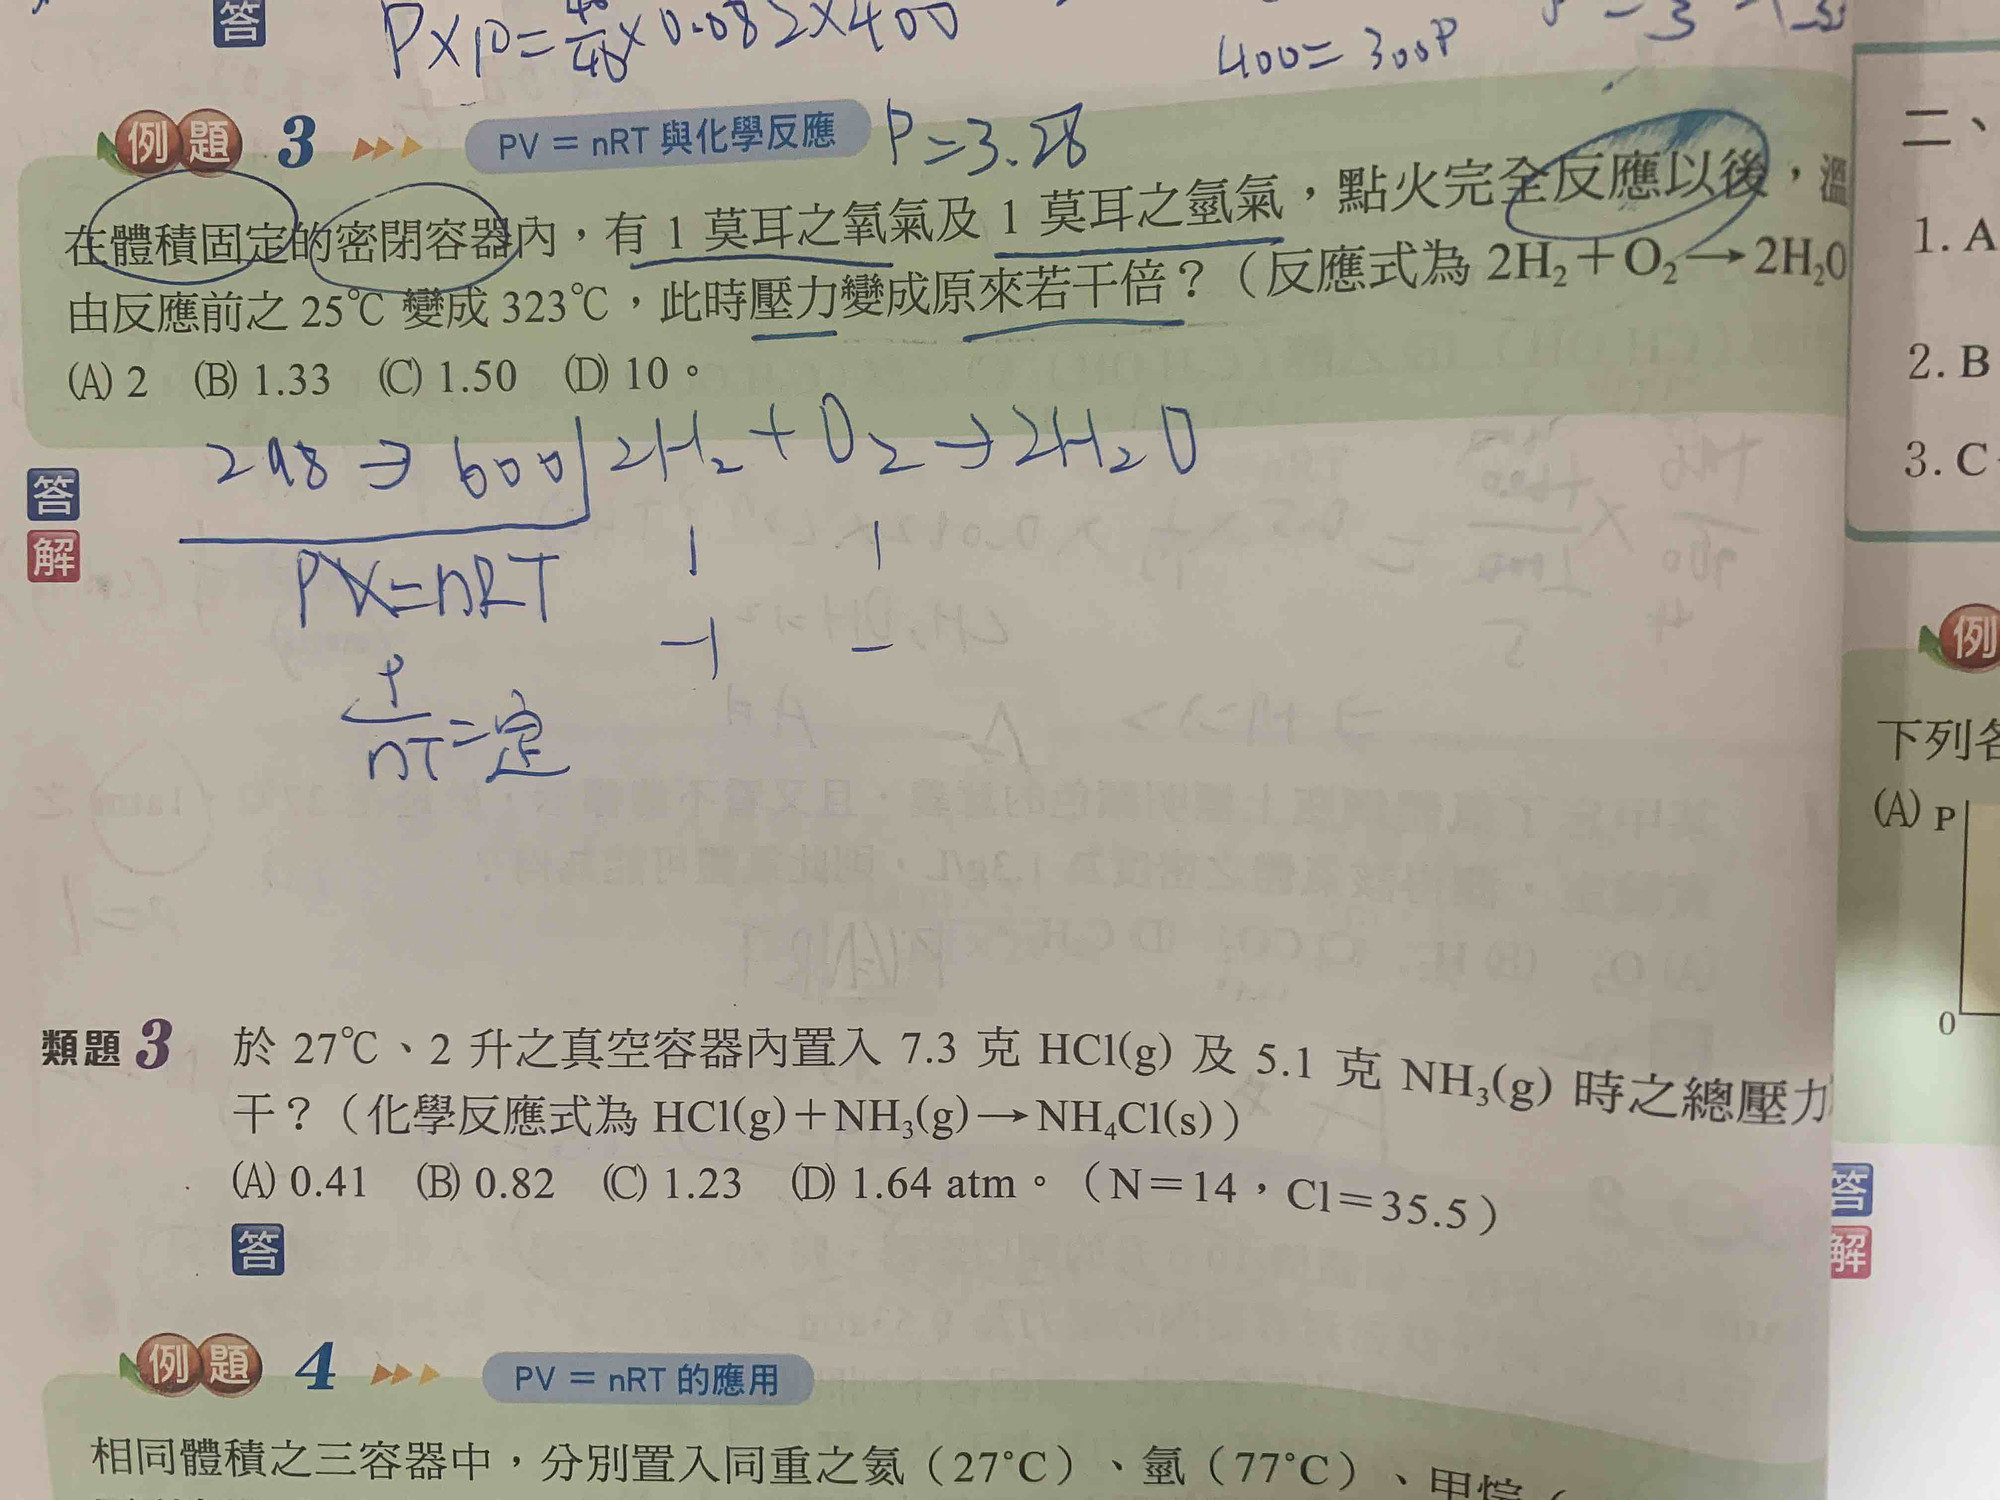 答 P×10=40/40×0.082×400
400=300P
例題 3 PV = nRT 與化學反應 P=3.28
在體積固定的密閉容器內，有 1 莫耳之氧氣及 1 莫耳之氫氣，點火完全反應以後，溫
由反應前之 25℃ 變成 323℃，此時壓力變成原來若干倍？（反應式為 2H₂＋O₂→2H₂O
(A) 2 (B) 1.33 (C) 1.50 (D) 10。
298→600 2H₂+O₂→2H₂O
答
解
1 1
PV=nRT
-1 -
P/nT=定
類題 3 於 27℃、2 升之真空容器內置入 7.3 克 HCl(g) 及 5.1 克 NH₃(g) 時之總壓力
干？（化學反應式為 HCl(g)＋NH₃(g)→NH₄Cl(s)）
(A) 0.41 (B) 0.82 (C) 1.23 (D) 1.64 atm。（N＝14，Cl＝35.5）
答
例題 4 PV = nRT 的應用
相同體積之三容器中，分別置入同重之氦（27°C）、氫（77°C）、甲烷（
二、
1. A
2. B
3. C
例
下列各
(A) P
0
答
解